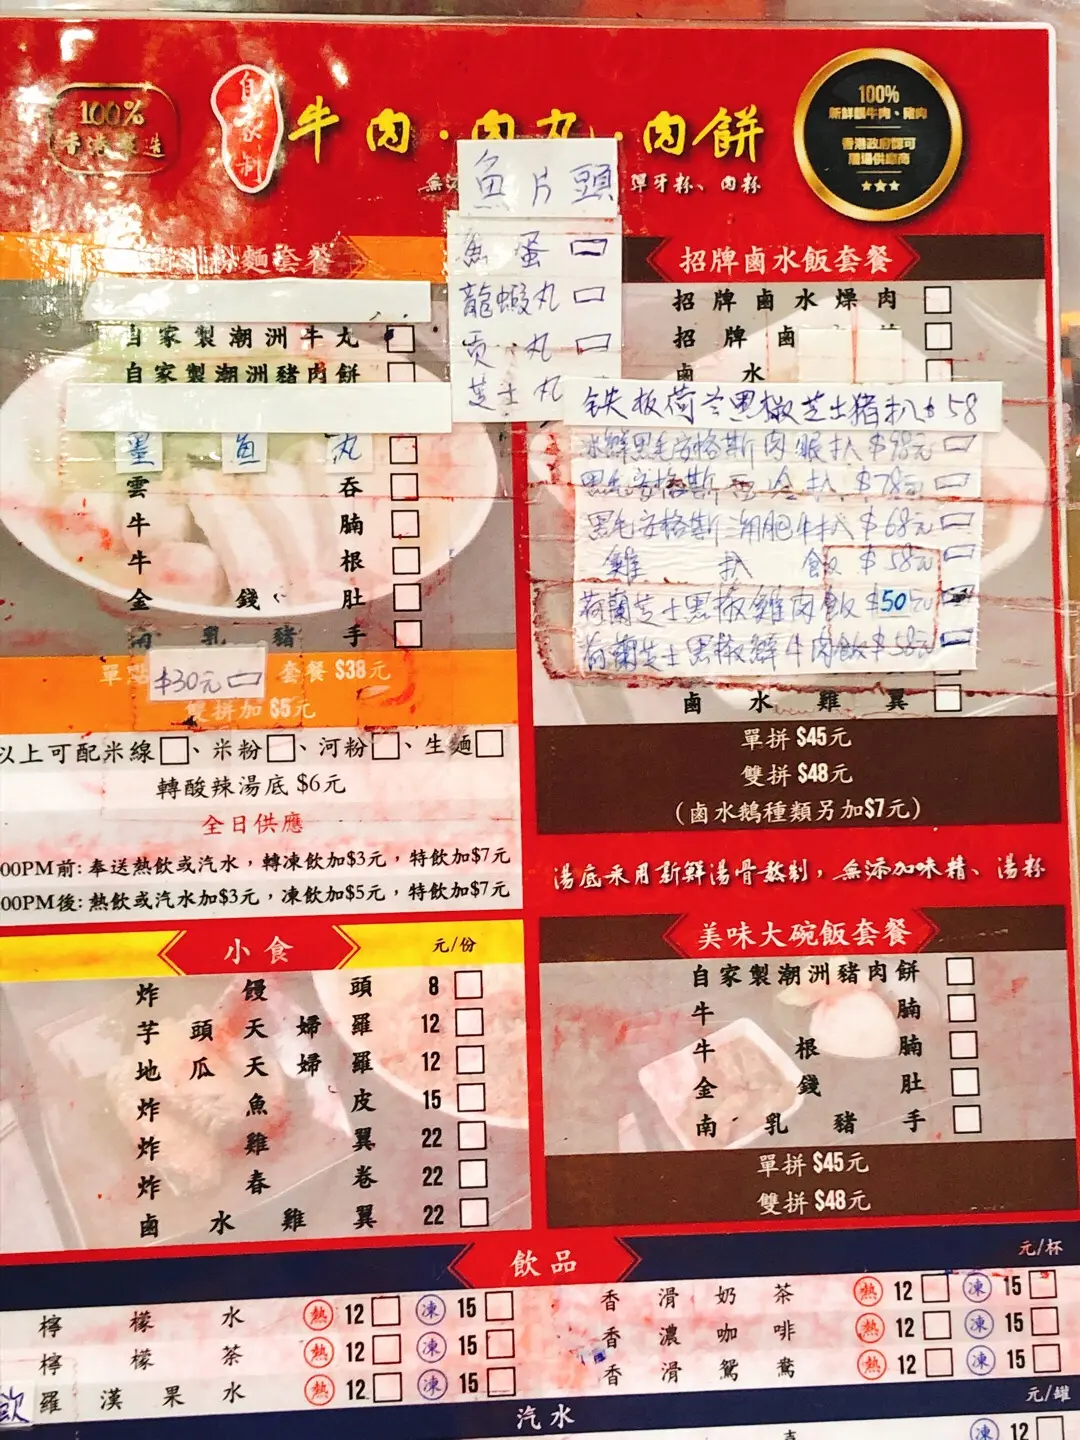 100%
自家制
牛肉·肉丸·肉餅
100%
新鮮 牛肉、豬肉
香港政府認可
供應商
彈牙粉、肉粉
魚片頭
魚蛋
龍蝦丸
貢丸
芝士丸
麵套餐
自家製潮洲牛丸
自家製潮洲豬肉餅
墨魚丸
雲吞
牛腩
牛根
金錢肚
南乳豬手
單點 $30元 套餐 $38元
雙拼加 $5元
以上可配米線、米粉、河粉、生麵
轉酸辣湯底 $6元
全日供應
00PM前: 奉送熱飲或汽水，轉凍飲加$3元，特飲加$7元
00PM後: 熱飲或汽水加$3元，凍飲加$5元，特飲加$7元
招牌鹵水飯套餐
招牌鹵水燥肉
招牌鹵
鹵水
铁板荷兰黑椒芝士猪扒$58
冰鮮黑毛安格斯肉眼扒 $98元
黑毛安格斯西冷扒 $78元
黑毛安格斯 肥牛扒 $68元
雞扒飯 $58元
荷蘭芝士黑椒雞肉飯 $50元
荷蘭芝士黑椒鮮牛肉飯 $58元
鹵水雞翼
單拼 $45元
雙拼 $48元
(鹵水鵝種類另加$7元)
湯底采用新鮮湯骨熬制，無添加味精、湯粉
小食 元/份
炸饅頭 8
芋頭天婦羅 12
地瓜天婦羅 12
炸魚皮 15
炸雞翼 22
炸春卷 22
鹵水雞翼 22
美味大碗飯套餐
自家製潮洲豬肉餅
牛腩
牛根腩
金錢肚
南乳豬手
單拼 $45元
雙拼 $48元
飲品 元/杯
檸檬水 熱 12 凍 15
檸檬茶 熱 12 凍 15
羅漢果水 熱 12 凍 15
香滑奶茶 熱 12 凍 15
香濃咖啡 熱 12 凍 15
香滑鴛鴦 熱 12 凍 15
飲
汽水 元/罐
凍 12